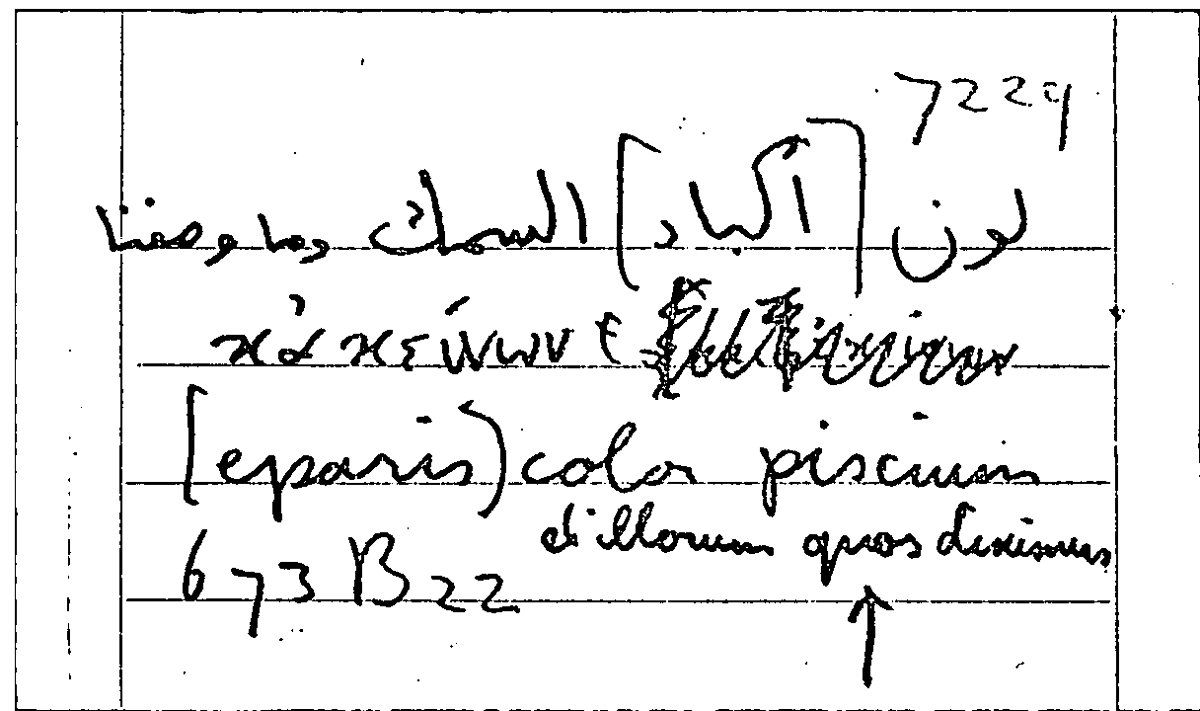 7229
لون [أكباد] السمك وما وصفنا
κἀκείνων
[eparis) color piscium
et illorum quos diximus
673 B 22